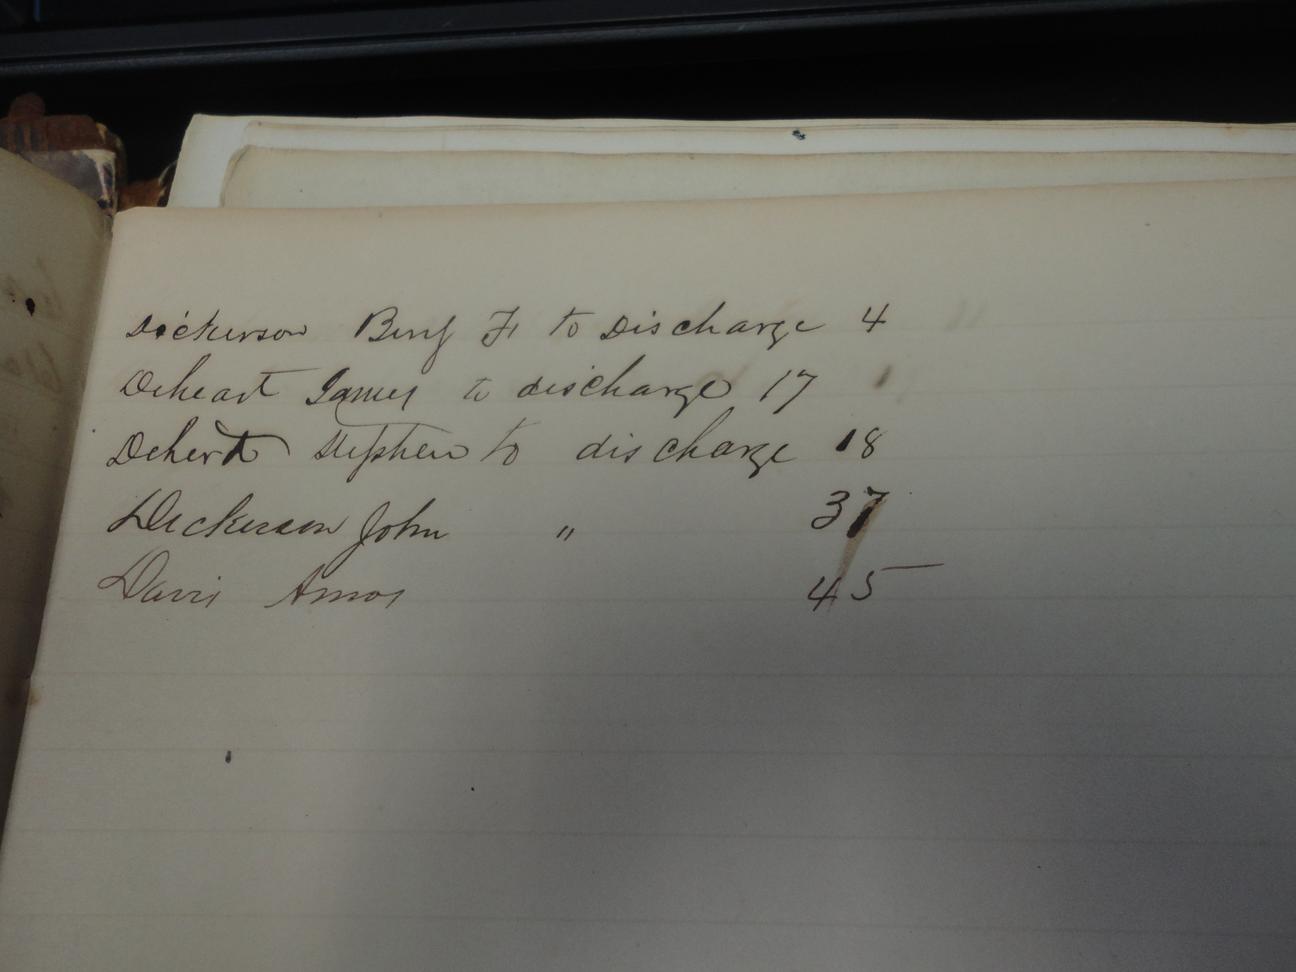 Dickerson Benj F to Discharge 4
Deheart James to discharge 17
Dehert Stephen to discharge 18
Dickerson John " 37
Davis Amos 45